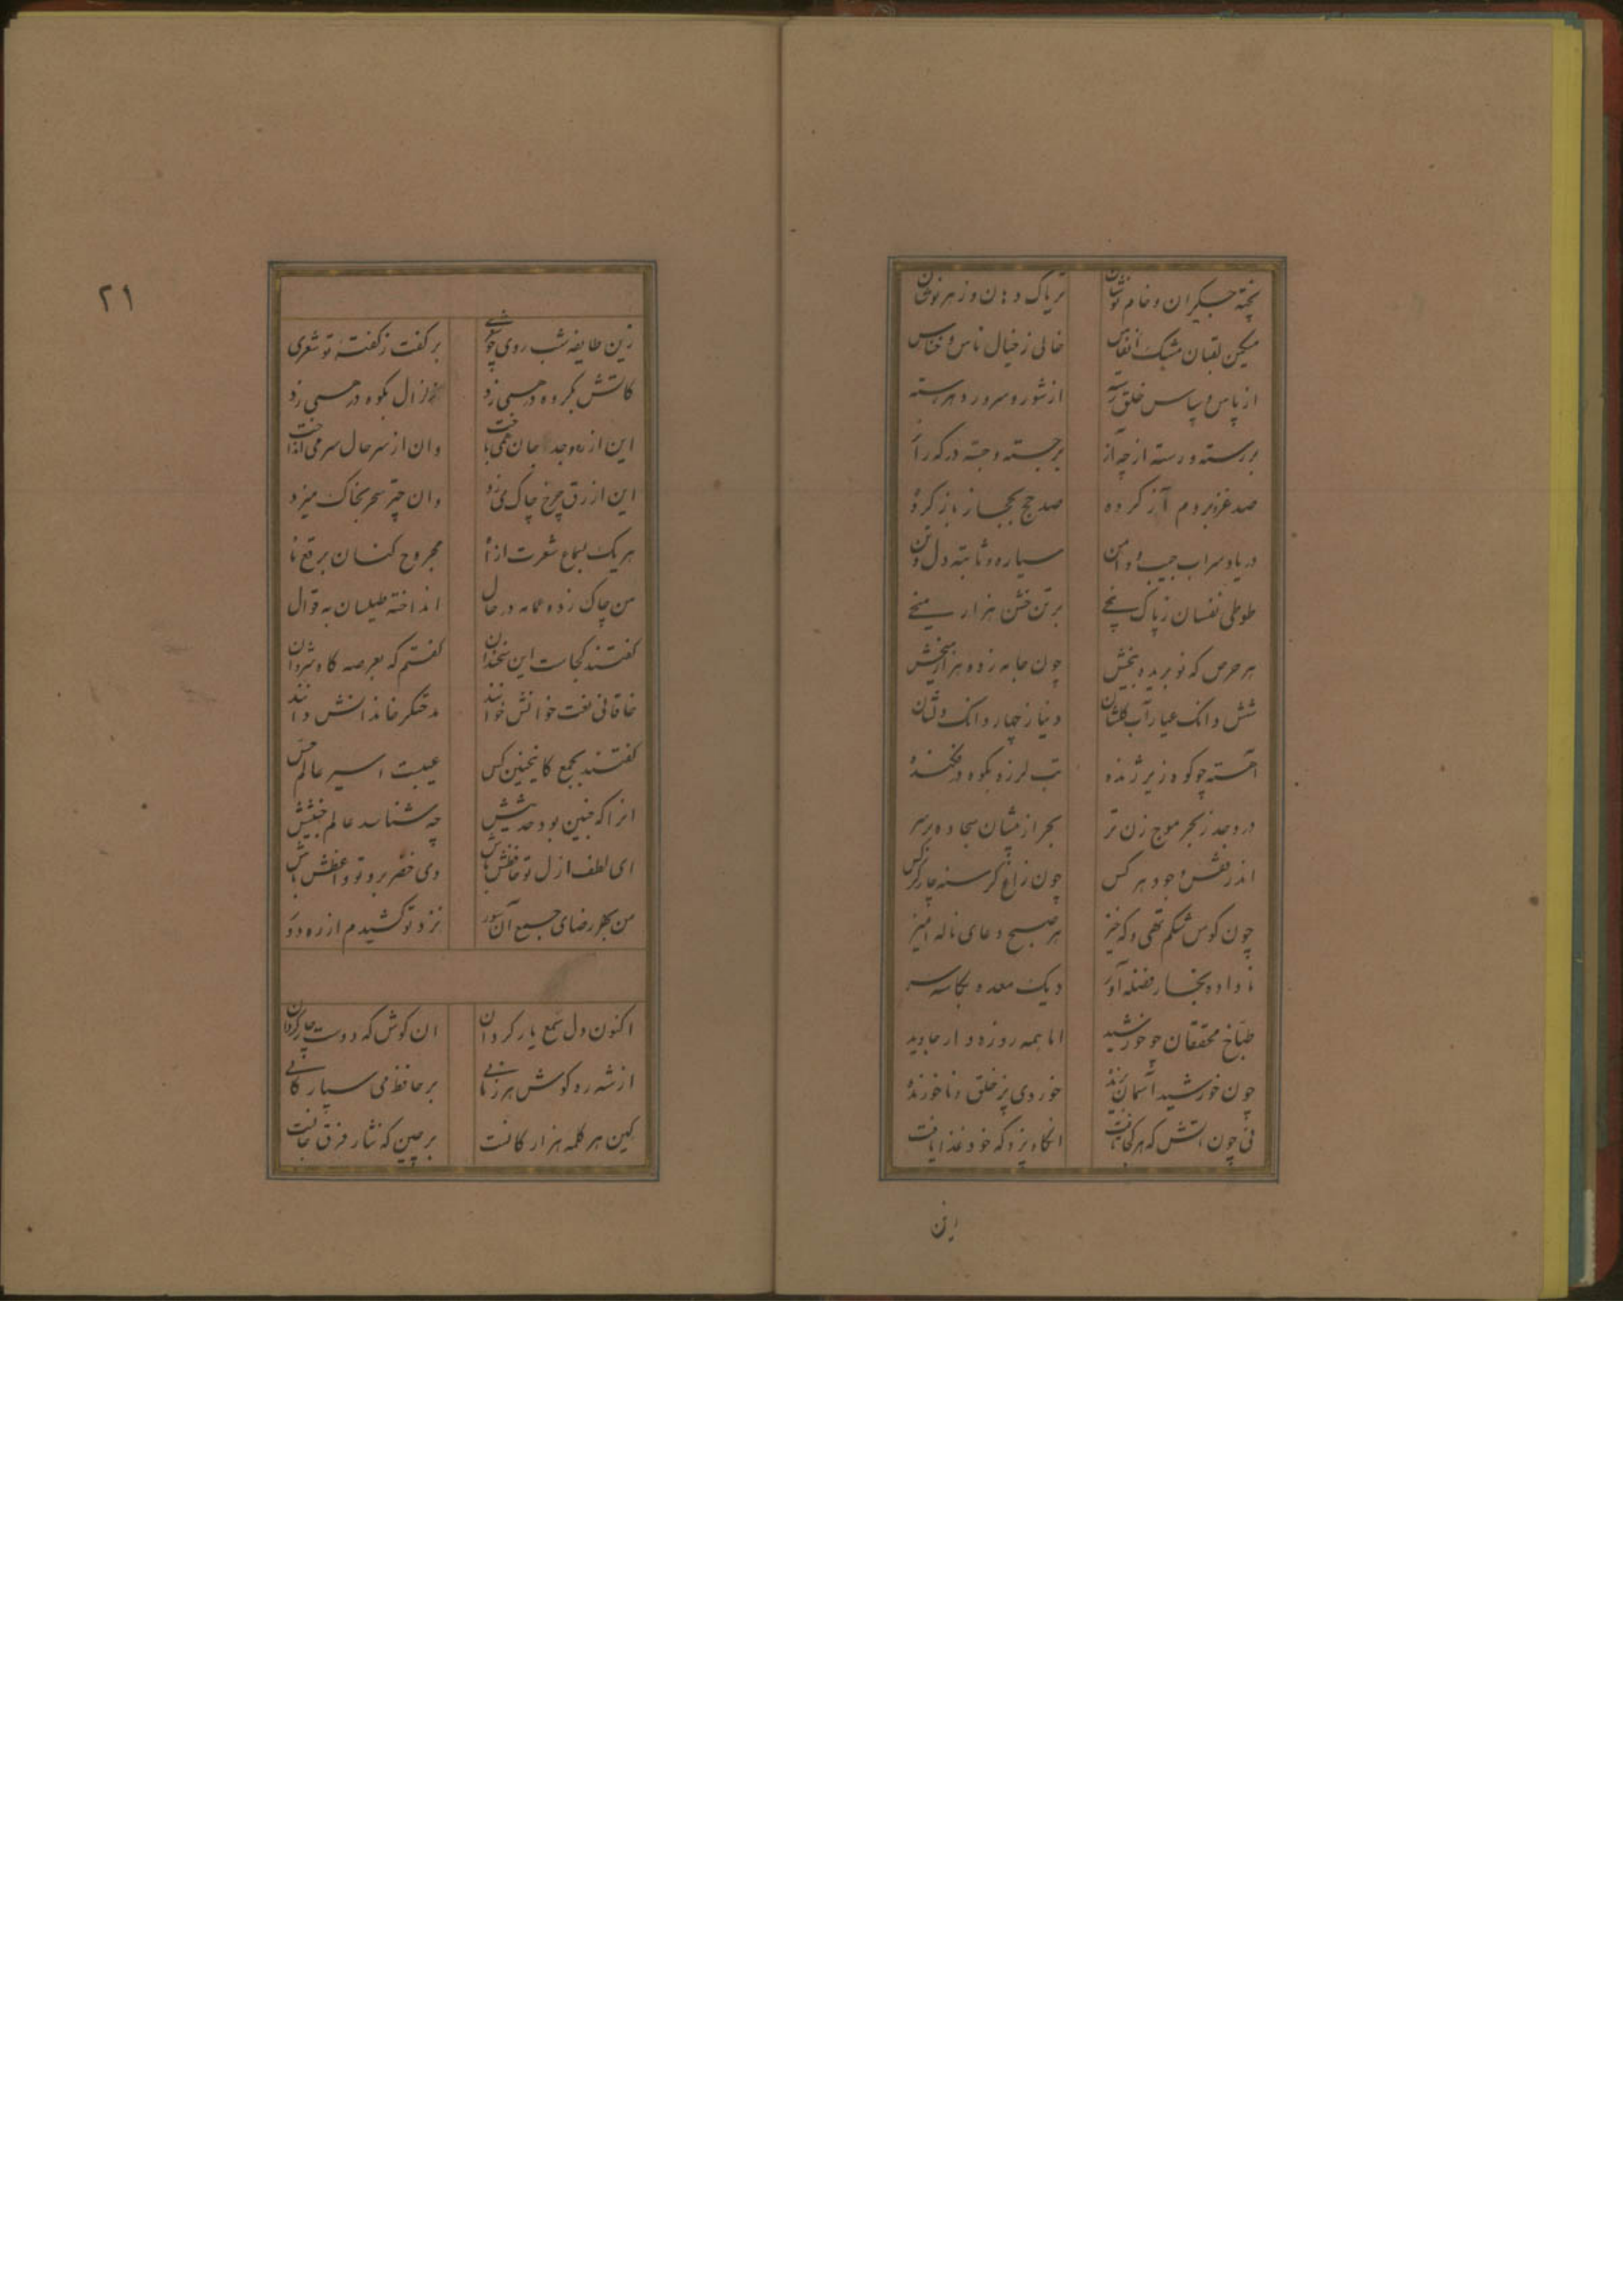 پخته جگران و خام نوشان تریاک دهان و زهر نوشان
مسکین لقبان مشک انفاس خالی ز خیال ناس و خناس
از پاس و سپاس خلق رسته از شور و سرور دهر رسته
بررسته و رسته از چه آز برجسته و جسته در کو راز
صد غزو بروم آز کرده صد حج بحجاز باز کرده
دریا و سراب جیب و دامن سیاره و ثابته دل و تن
طوطی نفسان ز پاک بر تن خشن هزار میخی
هر حرص که نو بریده بخش چون جامه زده هزار بخش
شش دانک عیار آب کلشان دنیا ز چهار دانک دلشان
آهسته چو کوه زیر ژنده تب لرزه بکوه درفکنده
در وجد ز بحر موج زن تر بحر از پیشان سجاده بر سر
اندر قفس وجود هر کس چون زاغ گرسنه چار کرکس
چون کوس شکم تهی و که خیز هر صبح دعای ناله امیز
نا داده بخار فضله آور دیک معده بکاسه سر
طباخ محققان چو خورشید اما همه روزه دار جاوید
چون خورشید آسمان پزنده خوردی پز خلق و نا خورنده
نی چون اتش که هر کجا یافت انگاه پزد که خود غذا یافت
این
۲۱
زین طایفه شب روی چو شعری بر گفت ز گفته تو شعری
کاتش بکروه درهمی زد زلزال بکوه درهمی زد
این از ره وجد جان همی باخت وان از سر حال سر می انداخت
این ازرق چرخ چاک می زد وان چتر سحر بخاک میزد
هر یک بسماع شعرت از ما مجروح کنان برقع ما
من چاک زده عمامه در حال انداخته طیلسان به قوال
گفتند کجاست این سخندان گفتم که بعرصه گاه شروان
خاقانی نعت خوانش خوانند مدحتگر خاندانش دانند
گفتند بجمع کاینچنین کس عیبست اسیر عالم خس
انرا که چنین بود حدیثش چه شناسد عالم خبیثش
ای لطف ازل تو حافظش باش وی خضر برو تو واعظش باش
من بهر رضای جمیع آن سور نزد تو کشیدم از ره دور
اکنون دل شمع یار کردان ان گوش که دوست چار کردان
از شه ره گوش هر زمانی بر حافظه می سپار کانی
کین هر کلمه هزار کانست برچین که نثار فرق جانست